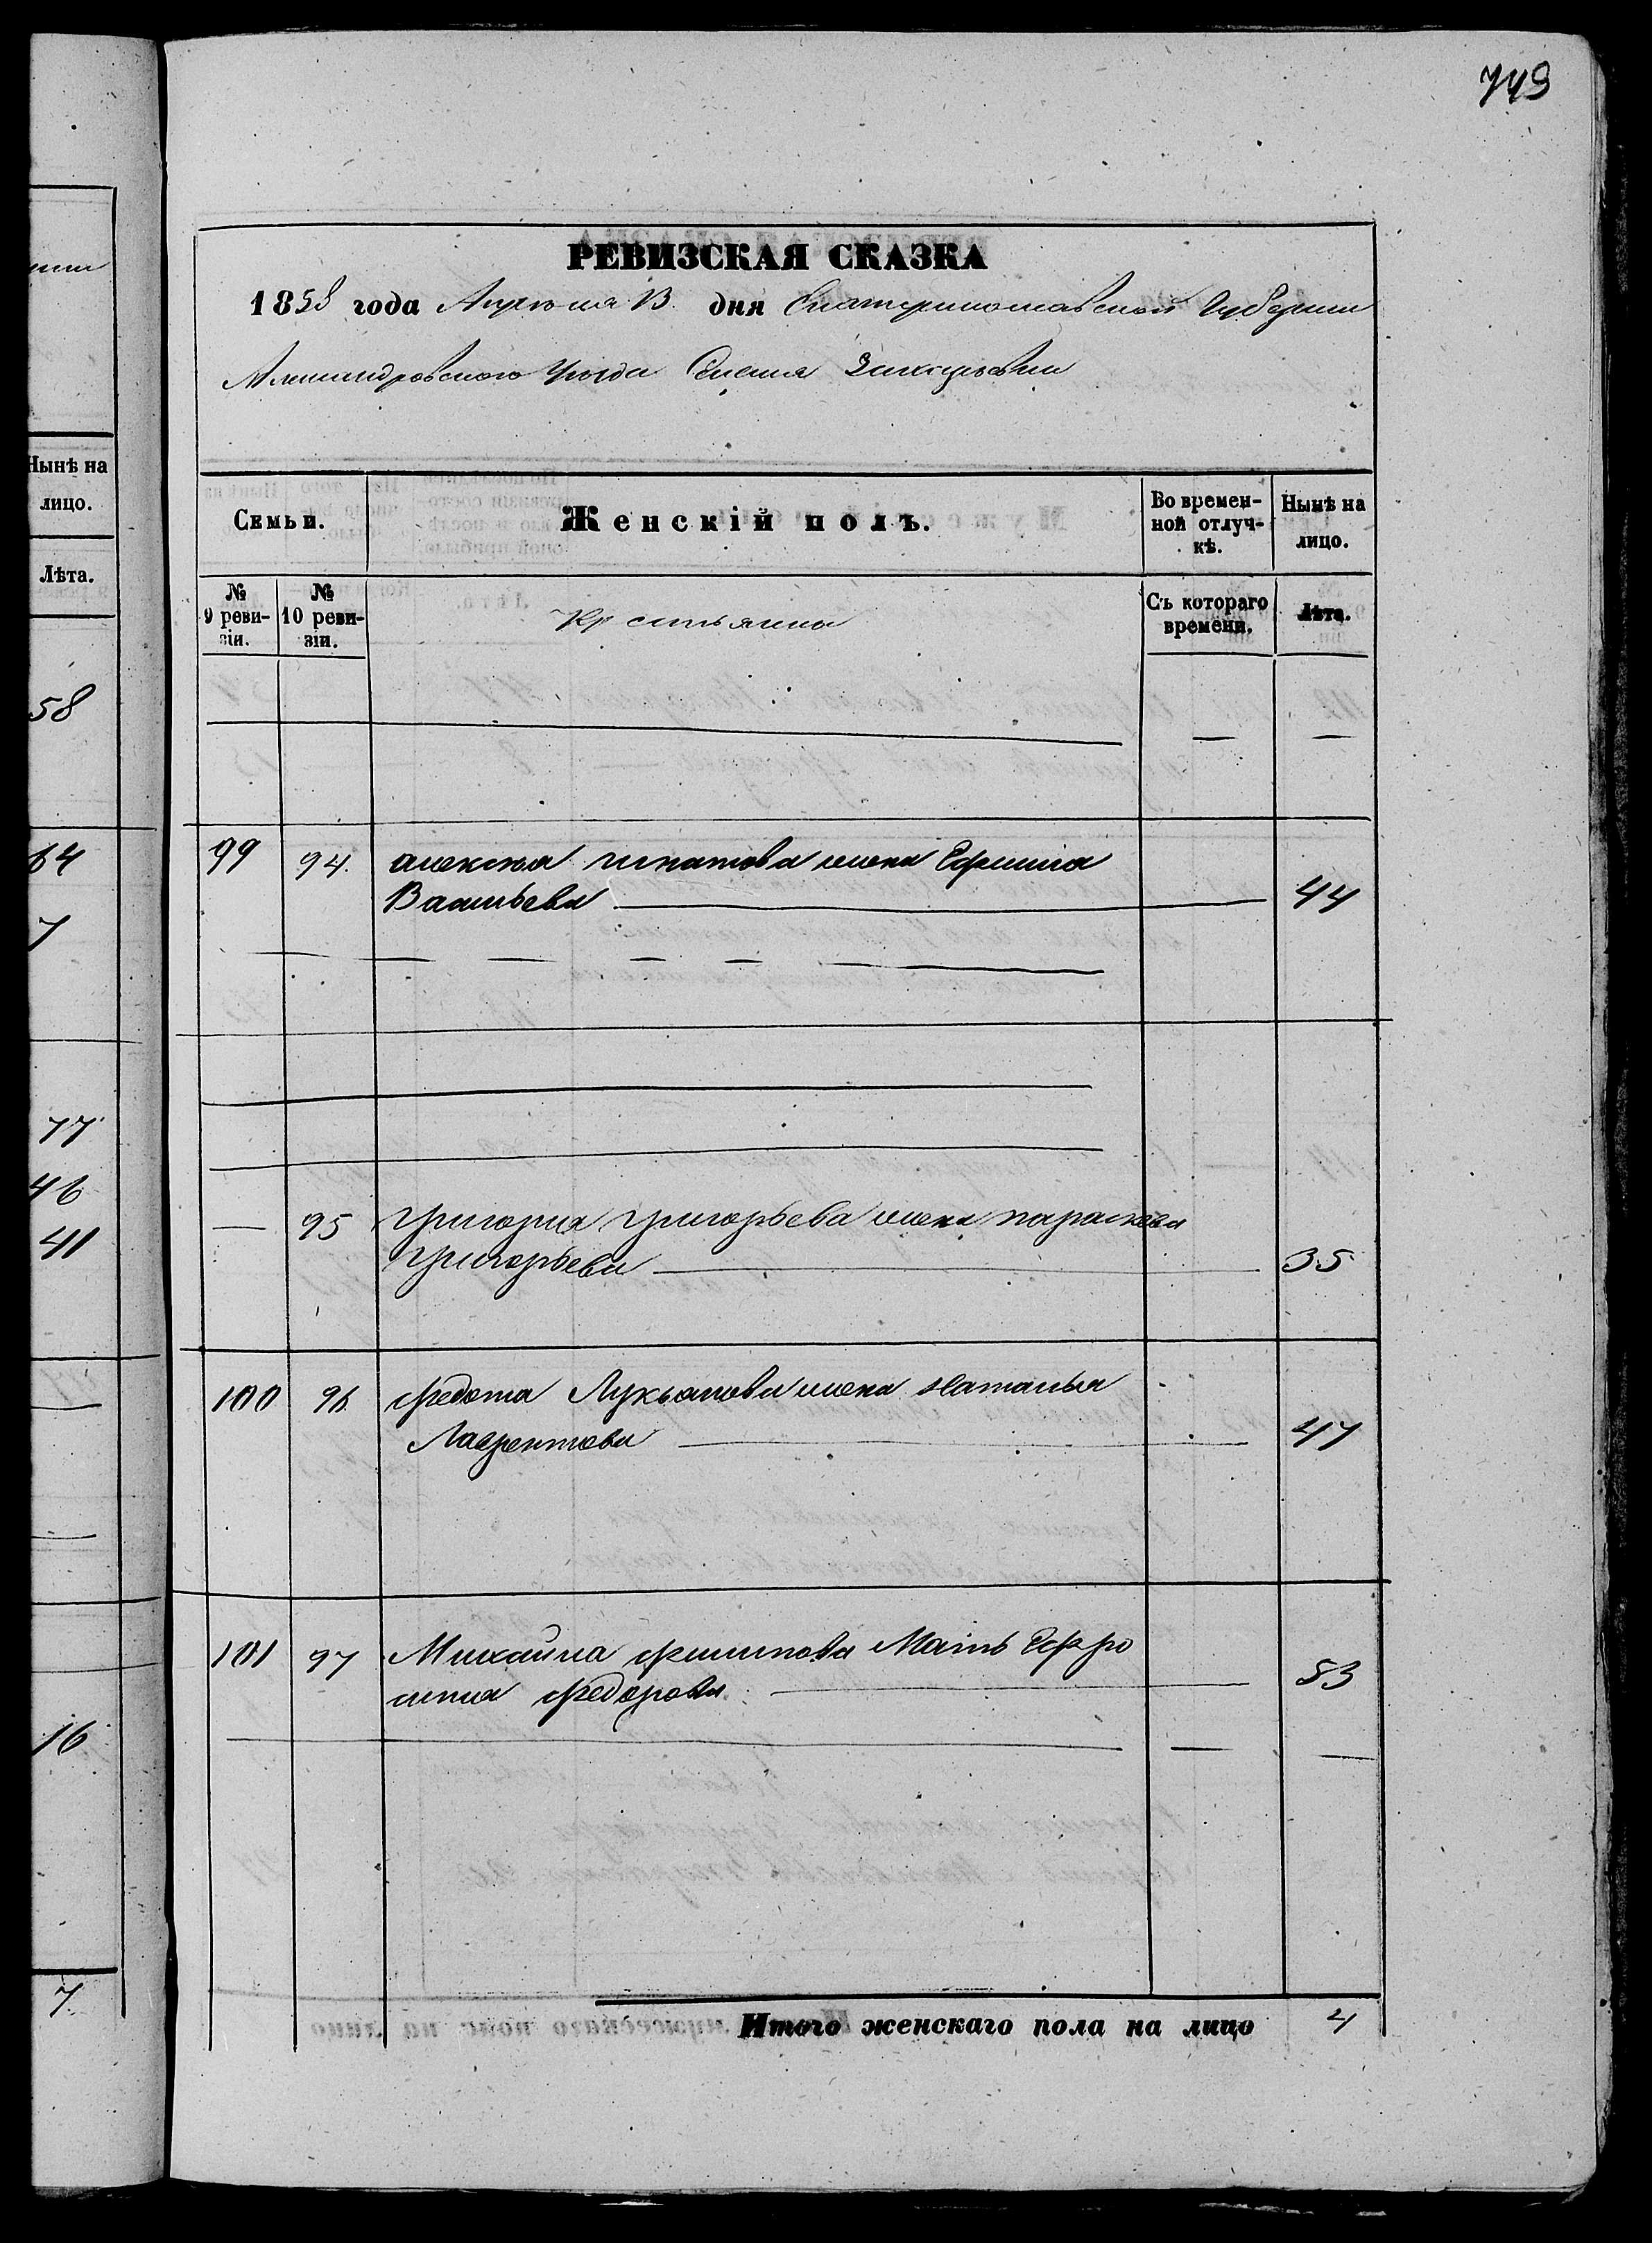 749
РЕВИЗСКАЯ СКАЗКА
1858 года Апрѣля В. дня Екатеринославской Губернии
Александровского Уѣзда Селения
Семьи.
Женскій полъ.
Во времен-
ной отлуч-
кѣ.
Нынѣ на
лицо.
№
9 реви-
зіи.
№
10 реви-
зіи.
Крестьянна
Съ котораго
времени.
Лѣта.
99 94. алексея игнатова жена Ефимия
Васильева 44
— 95 григория григорьева жена параскева
григорьева 35
100 96 федота Лукьянова жена наталья
Лаврентова 47
101 97 Михайла филипова Мать Ефро
синия федорова 53
Итого женскаго пола на лицо 4
Нынѣ на
лицо.
Лѣта.
58
64
7
77
46
41
16
7